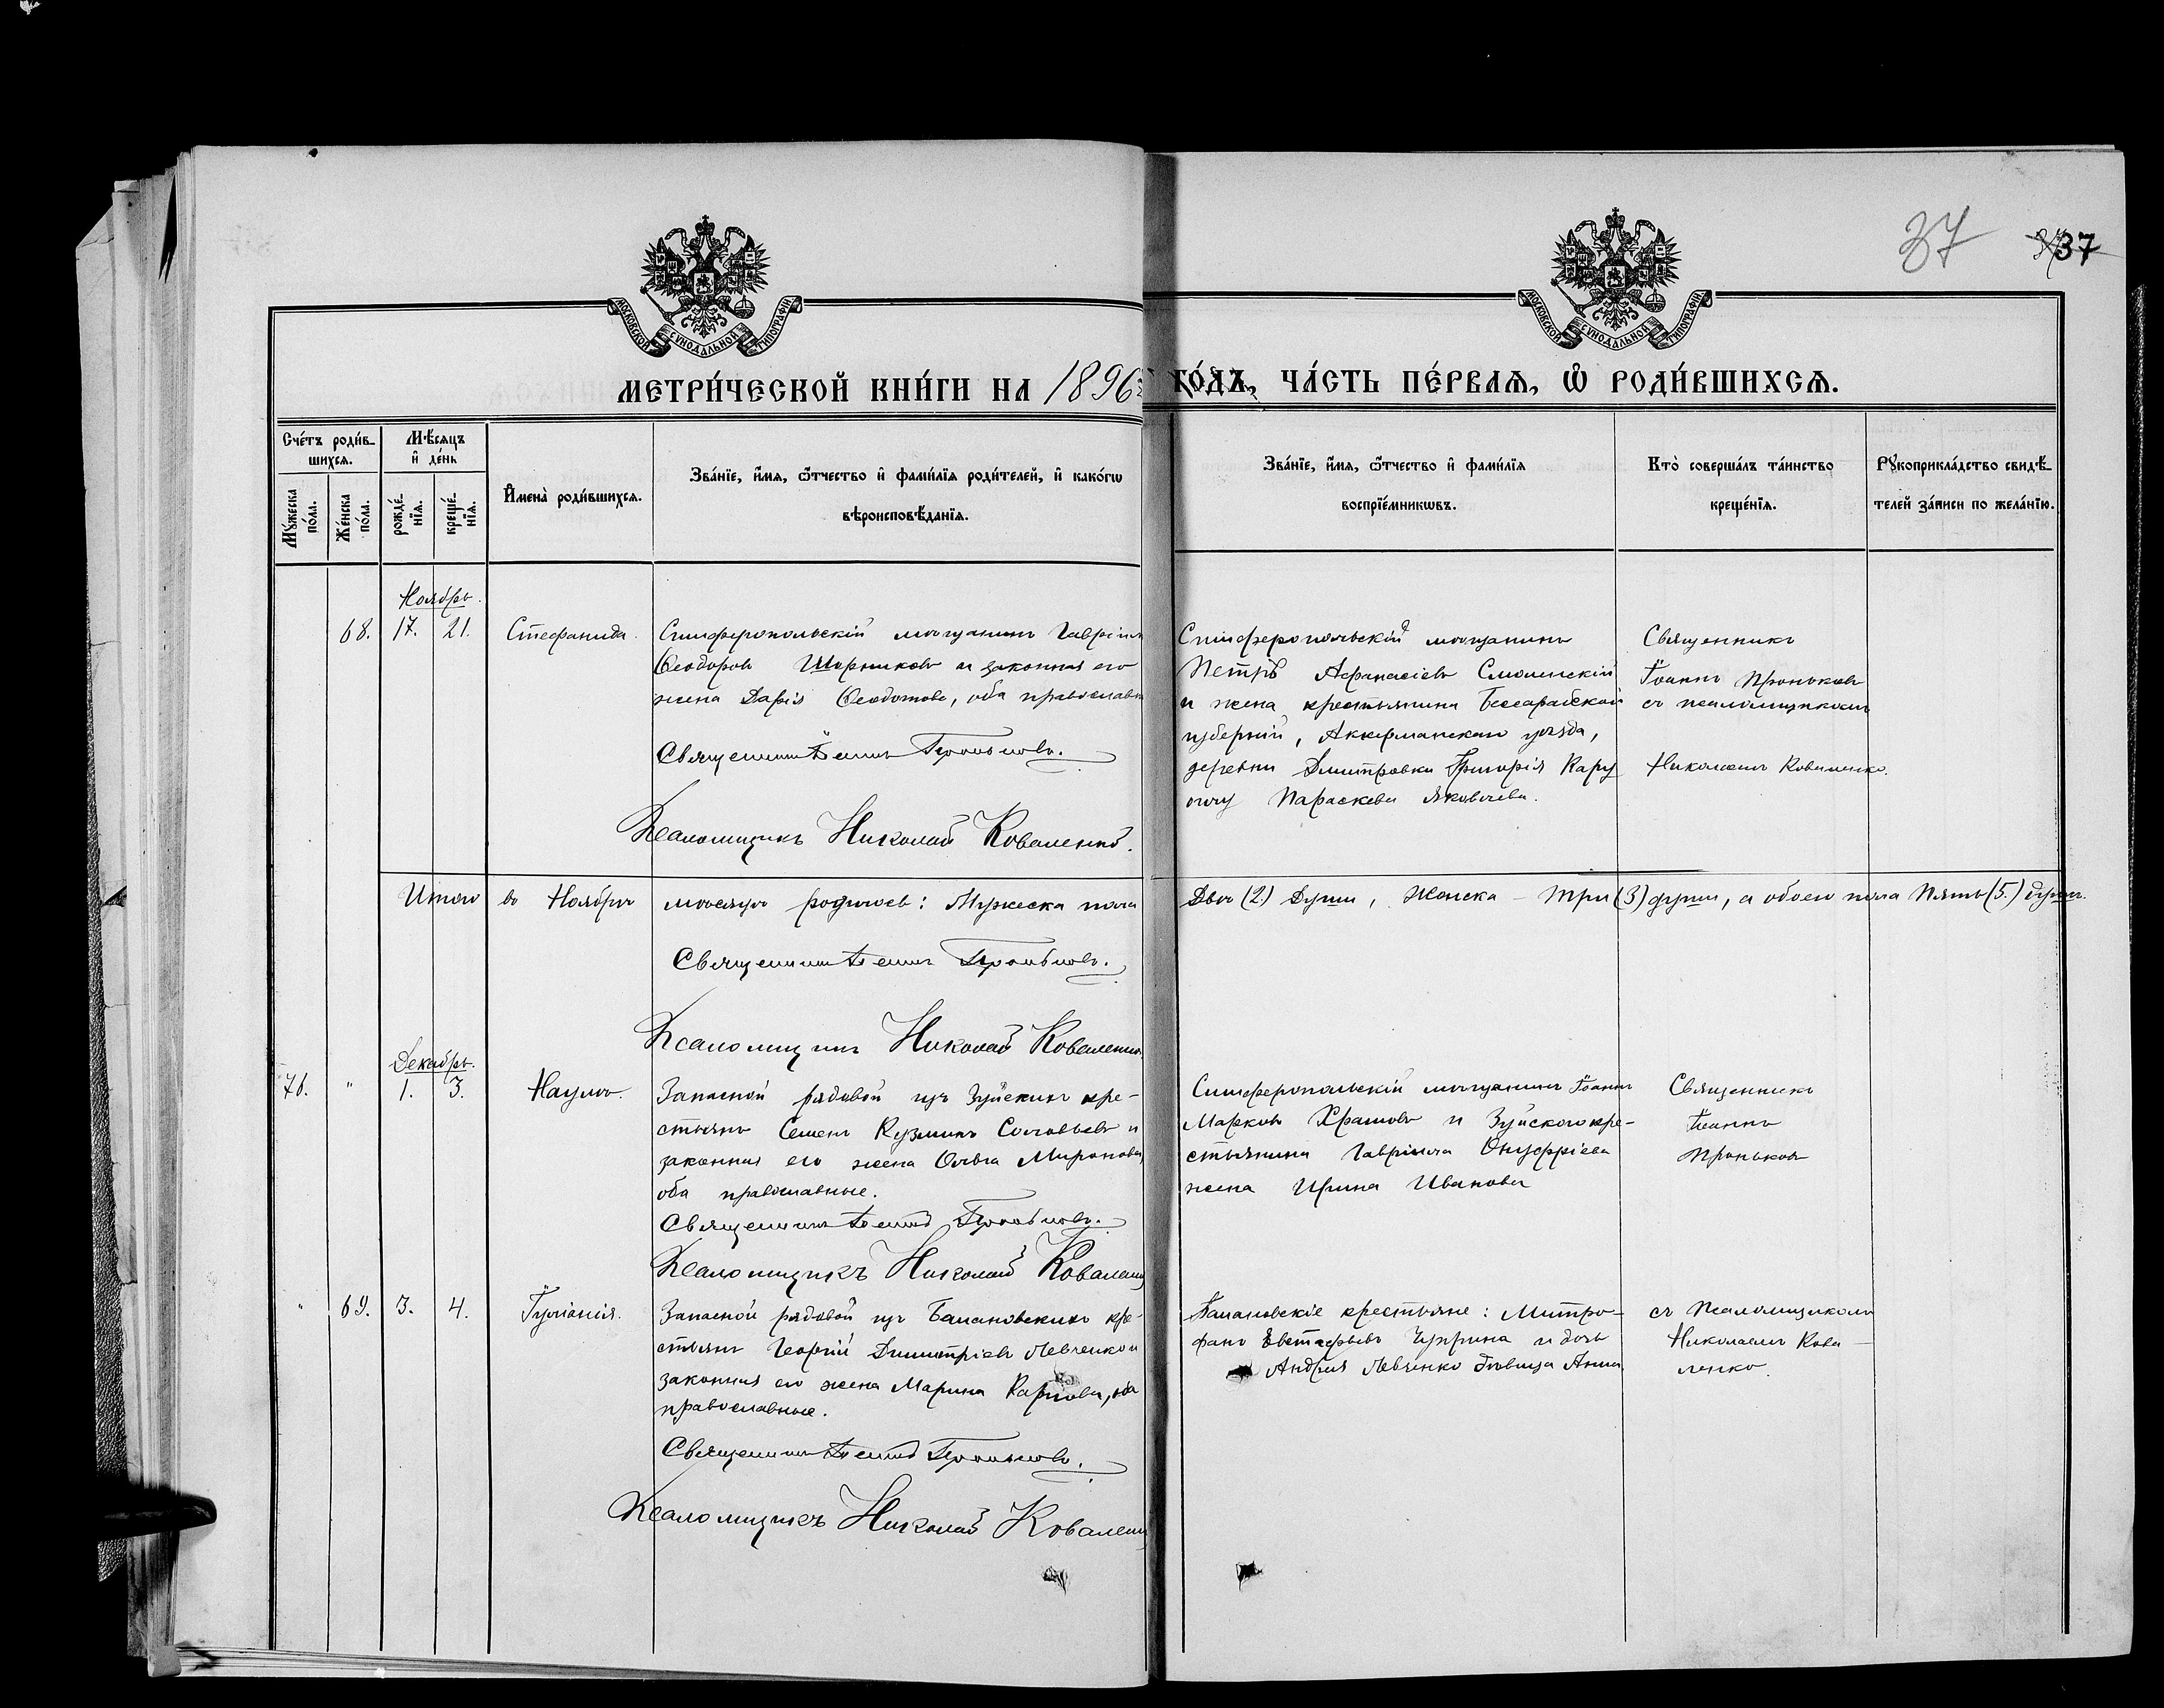 37
37
МОСКОВСКОЙ СѴНОДАЛЬНОЙ ТИПОГРАФІИ
МОСКОВСКОЙ СѴНОДАЛЬНОЙ ТИПОГРАФІИ
МЕТРИ́ЧЕСКОЙ КНИ́ГИ НА 1896й ГО́ДЪ, ЧА́СТЬ ПЕ́РВАѦ, Ѡ҆ РОДИ́ВШИХСѦ.
Сче́тъ роди́вшихсѧ.
Мѹ́жеска по́ла.
Же́нска по́ла.
Мѣ́сѧцъ и҆ де́нь
рожде́нїѧ.
креще́нїѧ.
И҆мена̀ роди́вшихсѧ.
Зва́нїе, и҆́мѧ, ѻ҆́тчество и҆ фами́лїѧ роди́телей, и҆ како́гѡ
вѣроисповѣ́данїѧ.
Зва́нїе, и҆́мѧ, ѻ҆́тчество и҆ фами́лїѧ
воспрїе́мникѡвъ.
Кто̀ соверша́лъ та́инство
креще́нїѧ.
Рꙋкоприкла́дство свидѣ́телей за́писи по жела́нїю.
Ноябрь.
68. 17. 21.
Стефанида.
Симферопольскій мѣщанинъ Гавріилъ
Ѳеодоровъ Шорниковъ и законная его
жена Дарія Ѳеодотова, оба православн
Священникъ Іоаннъ Проньковъ.
Псаломщикъ Николай Коваленко.
Симферопольскій мѣщанинъ
Петръ Аѳанасіевъ Смоленскій
и жена крестьянина Бессарабской
губерніи, Аккерманскаго уѣзда,
деревни Дмитровки Григорія Кару
Параскева Яковлева.
Священникъ
Іоаннъ Проньковъ
съ псаломщикомъ
Николаемъ Коваленко.
Итого въ Ноябрѣ мѣсяцѣ родилось: Мужеска пола Двѣ (2) Души, Женска – три (3) души, а обоего пола Пять (5.) душъ.
Священникъ Іоаннъ Проньковъ.
Псаломщикъ Николай Коваленко
Декабрь.
76. " 1. 3.
Наумъ.
Запасной рядовой изъ Зуйскихъ кре-
стьянъ Семенъ Кузминъ Соловьевъ и
законная его жена Ольга Миронова,
оба православные.
Священникъ Іоаннъ Проньковъ.
Псаломщикъ Николай Коваленк
Симферопольскій мѣщанинъ Іоаннъ
Марковъ Храмовъ и Зуйскаго кре-
стьянина Гавріила Онуфріева
жена Ирина Иванова
Священникъ
Іоаннъ
Проньковъ
" 69. 3. 4.
Іуліанія.
Запасной рядовой изъ Балановскихъ кре-
стьянъ Георгій Димитріевъ Левченко и
законная его жена Марина Карпова, оба
православные.
Священникъ Іоаннъ Проньковъ.
Псаломщикъ Николай Коваленк
Балановскіе крестьяне: Митро-
фанъ Евстафьевъ Чуприна и дочь
Андрея Левченко дѣвица Анна
съ Псаломщикомъ
Николаемъ Кова-
ленко.